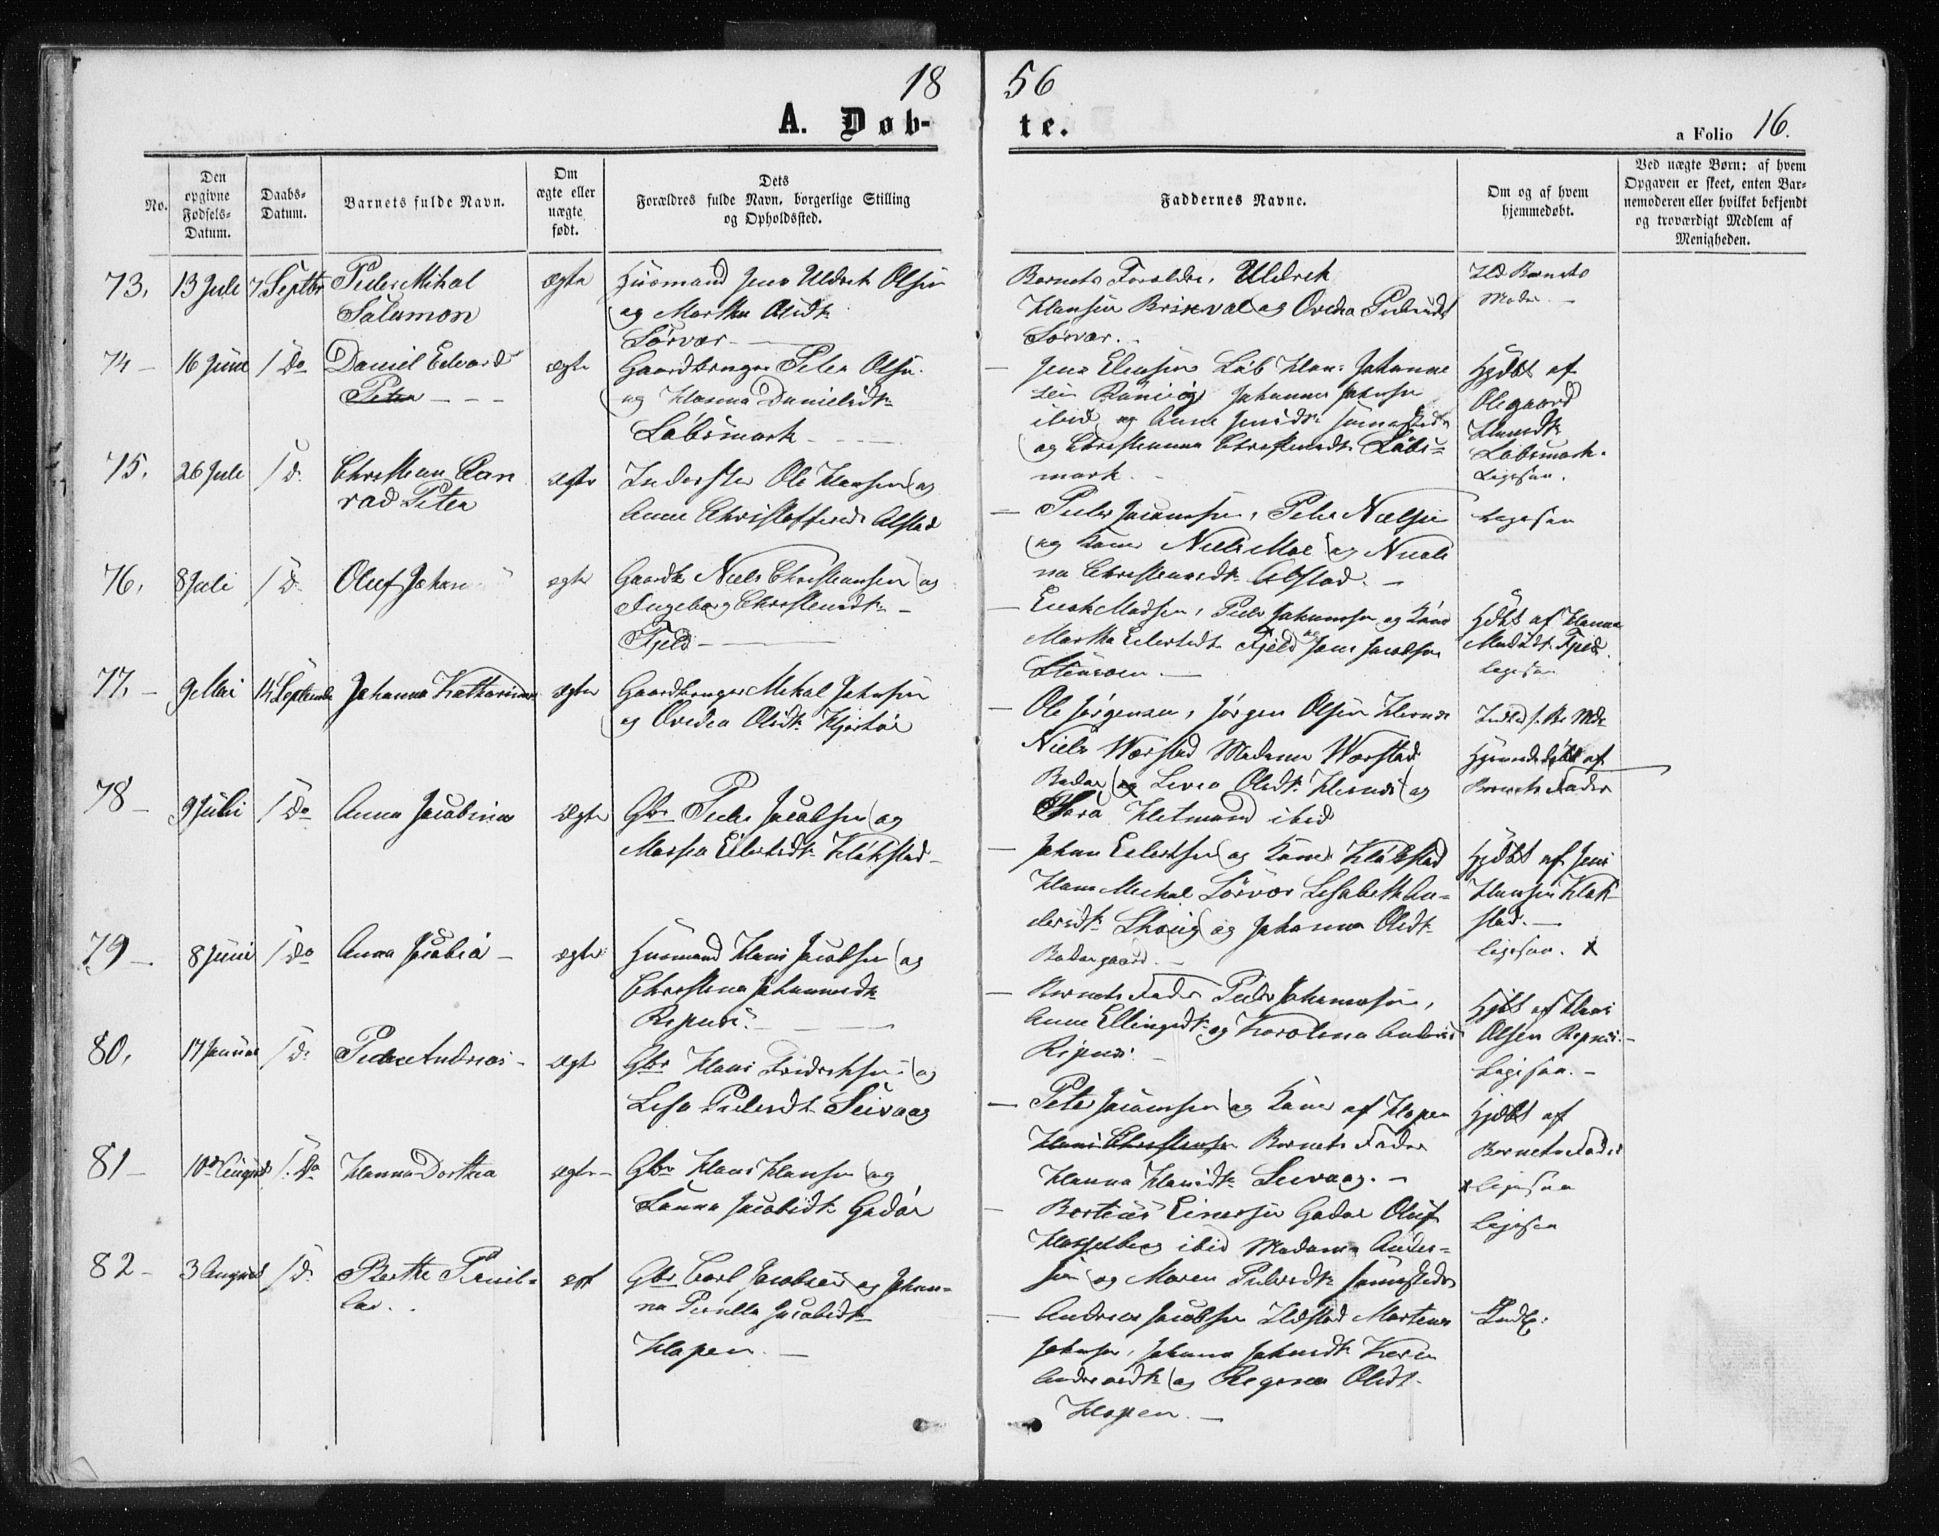 18 56
A. Døb- te.
a Folio 16.
No.
Den opgivne Fødsels-Datum.
Daabs-Datum.
Barnets fulde Navn.
Om ægte eller uægte født.
Dets Forældres fulde Navn, borgerlige Stilling og Opholdssted.
Faddernes Navne.
Om og af hvem hjemmedøbt.
Ved uægte Børn: af hvem Opgaven er skeet, enten Barnemoderen eller hvilket bekjendt og troværdigt Medlem af Menigheden.
73. 13 Juli 7 Septbr Peder Mikal
Salamon
ægte
Huusmand Jens Uldrik Olsen
og Martha Olsdtr
Sørvær
Barnets Forældre, Uldrik
Hansen Brixeval og Ovedia Pedersdtr
Sørvær.
Moder
74 - 16 Juni / Do Daniel Edvard
Peter
ægte
Gaardbruger Peter Olsen
og Hanna Danielsdtr
Løbsmark
Jens Elensen Løb Hans Johanne
Johannes Johnsen
ibid og Anne Jensdtr
og Christianna Christensdtr Løbs=
mark.
Hjdbt af
Olegaard
Hansdtr
Løbsmark.
Ligesaa.
75. 26 Juli / D. Christian Con
rad Peter
ægte
Inderster Ole Hansen og
Anne Christoffersd Alstad
Peder Jacobsen, Peter Nielsen
og Kone Niels Moe og Nicoli
na Christensdtr Alstad.
Ligesaa
76. 8 Juli / D. Oluf Johan
ægte
Gaardbr Niels Christiansen og
Ingeborg Christensdtr
Fjeld
Enok Madsen, Peder Johansen og Kone
Martha Eilertsdtr Fjeld Jens Jacobsen
Hjdbt af Hanna
Madsdtr Fjeld.
Ligesaa
77. - 9 Mai 14 September Johanna Katharina
ægte
Gaardbruger Mikal Johnsen
og Ovedia Olsdtr Kjerhør
Ole Jørgensen, Jørgen Olsen Hernes
Niels Værstad Madame Værstad
Bodøe og Livea Olsdtr Hernes og
Sara Hetmand ibid
Hjemmedøbt af
Barnets Fader
78 - 9 Julii / Do Anna Jacobina
ægte
Gbr Peder Jacobsen og
Massea Eilertsdtr Kløkstad
Johan Eilertsen og Kone Kløkstad
Hans Michal Sørvær Elisabeth An=
dersdtr Skaug og Johanna Olsdtr
Bodøegaard
Hjdbt af Jens
Hansen Kløk
stad.
Ligesaa.
79 - 8 Juni / Do Anna Jacobia
ægte
Huusmand Hans Jacobsen og
Christina Johannesdtr
Ripnes
Barnets Fader Peder Johannesen,
Anne Ellingsdtr og Karolina Andersd
Ripnes.
Hjdbt af Hans
Olsen Ripnes.
Ligesaa.
80. 17 Januar / D. Peder Andreas
ægte
Gbr Hans Fridriksen og
Lisa Pedersdtr Seivaag
Peter Jacobsen og Kone af Hopen
Hans Christensen Barnets Fader
Hanna Hansdtr Seivaag.
Hjdbt af
Barnets Fader
Ligesaa
81 - 10de August / Do Hanna Dorthea
ægte
Gbr Hans Hansen og
Hanna Jacobsdtr Godør
Bortius Einersen Godør Oluf
Hasselberg ibid Madame Ander=
sen og Maren Pedersdtr
Ligesaa
82 - 3 August / D. Berthe Pernil=
lae.
ægt
Gbr Carl Jacobsen og Johan=
na Pernilla Jacobsdtr
Hopen
Andreas Jacobsen Ildstad Martinus
Johnsen, Johanna Johnsdtr Karen
Andreasdtr og Regina Olsdt.
Hopen.
Indf: